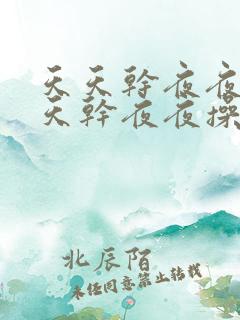 天天幹夜夜
天幹夜夜操
北辰陌
未经同意禁止转载